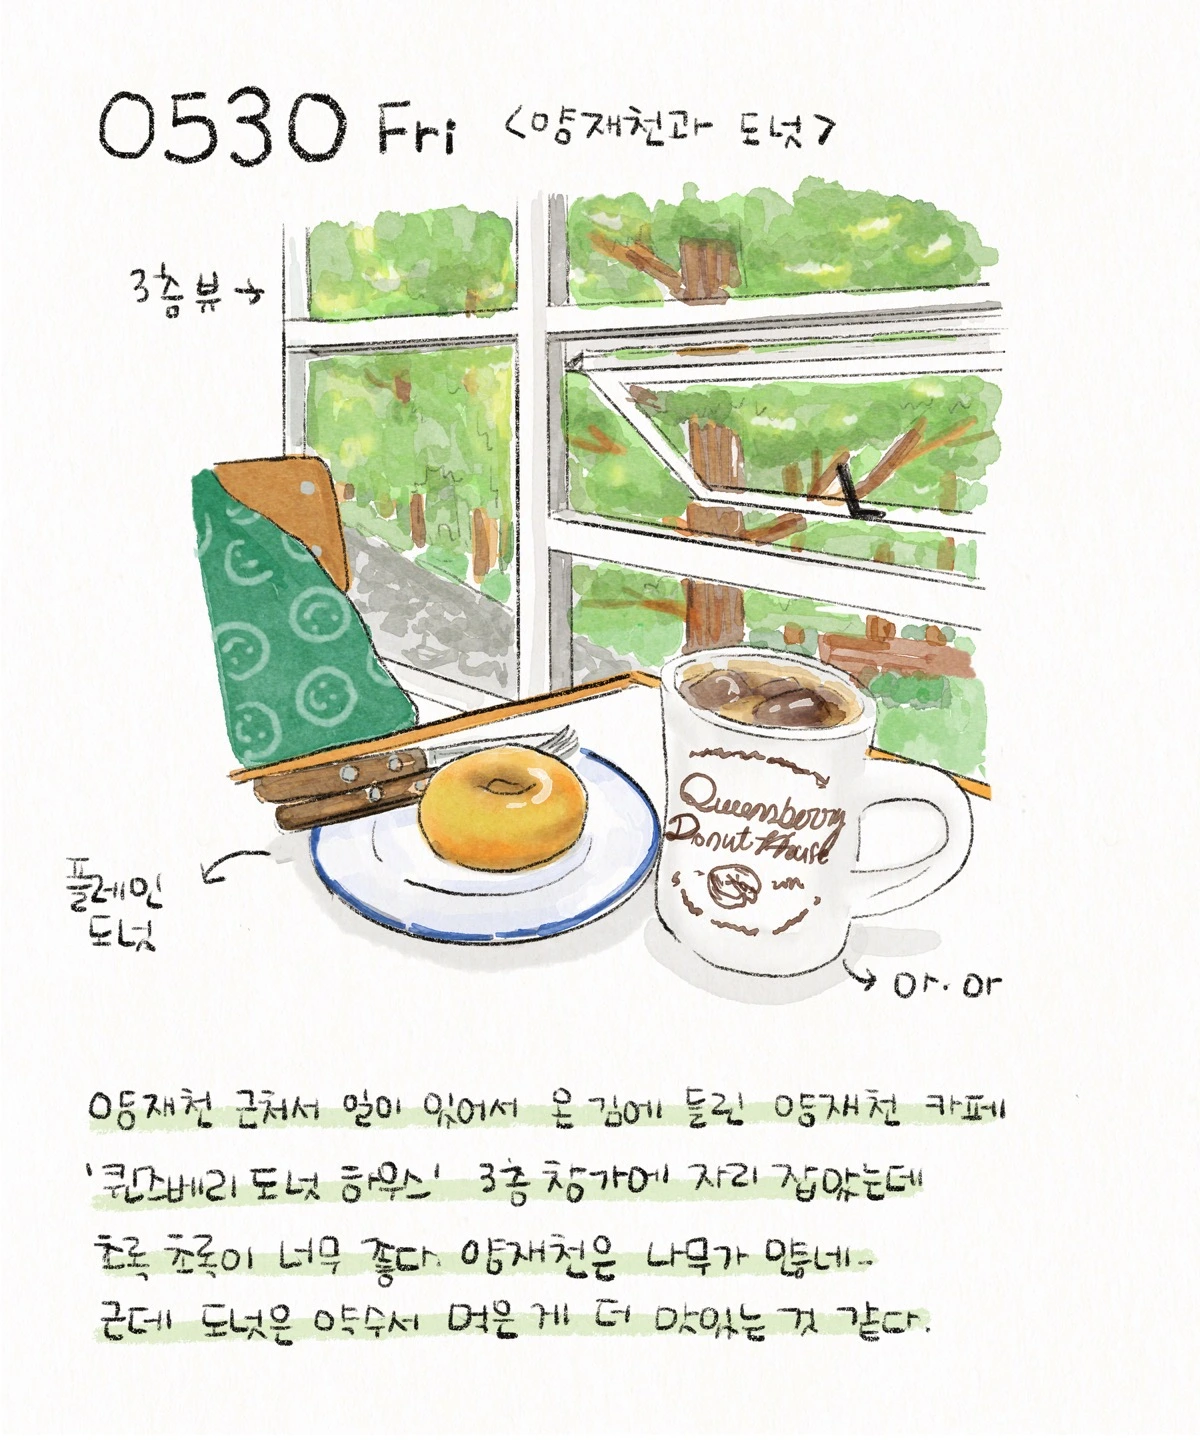 0530 Fri <양재천과 도넛>
3층 뷰→
Queensberry
Donut House
플레인
도넛
아.아
양재천 근처서 일이 있어서 온 김에 들린 양재천 카페
'퀸즈베리 도넛 하우스' 3층 창가에 자리 잡았는데
초록 초록이 너무 좋다. 양재천은 나무가 많네..
근데 도넛은 약수서 먹은 게 더 맛있는 것 같다.